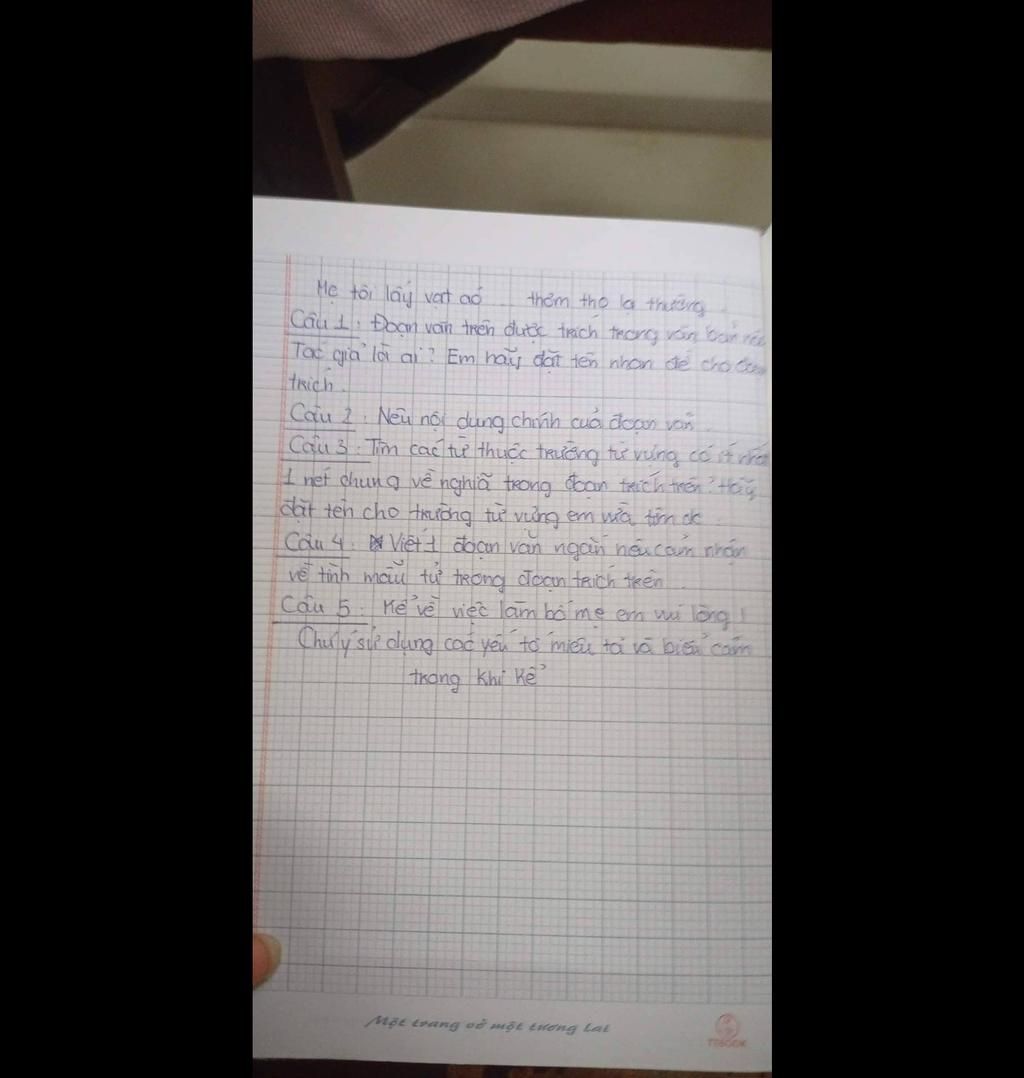 Mẹ tôi lấy vạt áo ... thơm tho lạ thường.
Câu 1: Đoạn văn trên được trích trong văn bản nào
Tác giả là ai? Em hãy đặt tên nhan đề cho đoạn
trích.
Câu 2: Nêu nội dung chính của đoạn văn.
Câu 3: Tìm các từ thuộc trường từ vựng có ít nhất
1 nét chung về nghĩa trong đoạn trích trên? Hãy
đặt tên cho trường từ vựng em vừa tìm đc.
Câu 4: Viết 1 đoạn văn ngắn nêu cảm nhận
về tình mẫu tử trong đoạn trích trên.
Câu 5: Kể về việc làm bố mẹ em vui lòng!
Chú ý sử dụng các yếu tố miêu tả và biểu cảm
trong khi kể
Một trang vở một tương lai
TTBOOK